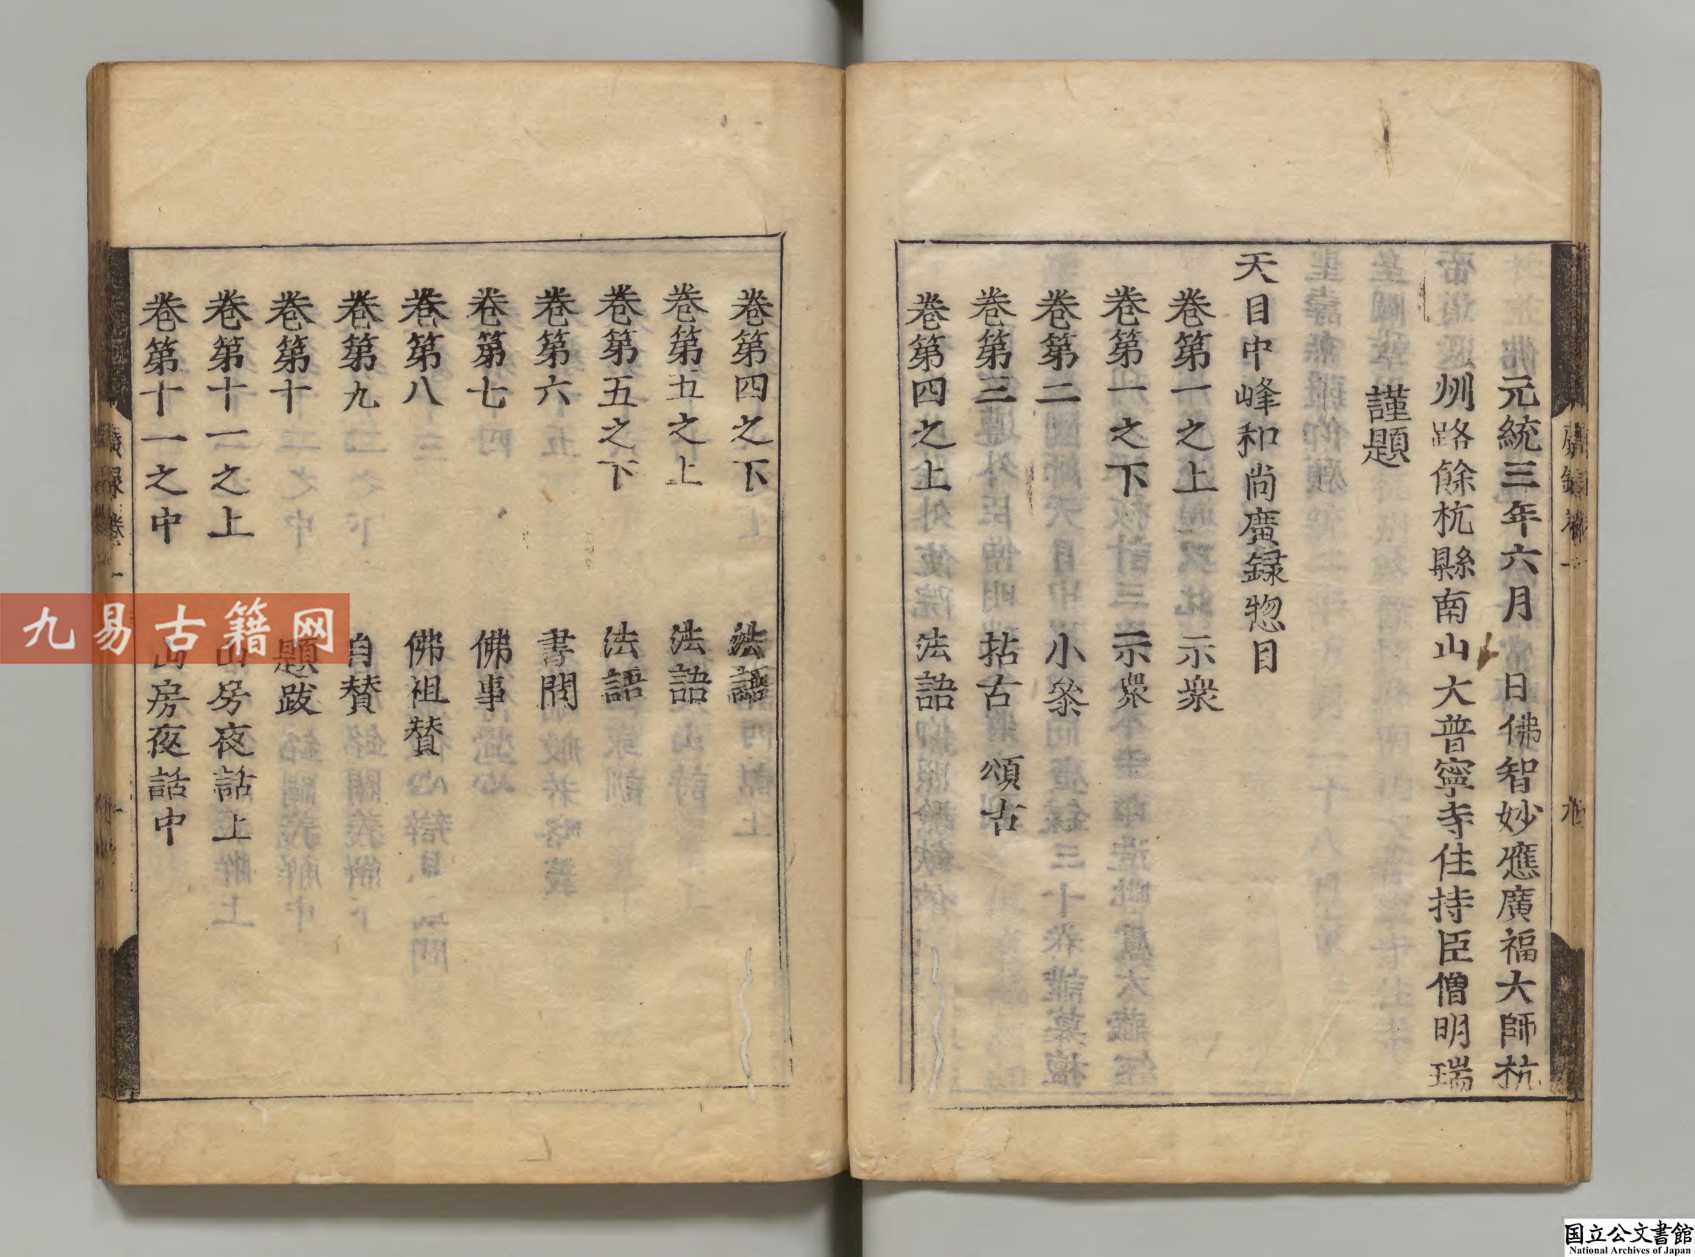 元統三年六月　日佛智妙應廣福大師杭
州路餘杭縣南山大普寧寺住持臣僧明瑞
謹題
天目中峰和尚廣録惣目
巻第一之上　示衆
巻第一之下　示衆
巻第二　小叅
巻第三　拈古　頌古
巻第四之上　法語
巻第四之下　法語
巻第五之上　法語
巻第五之下　法語
巻第六　書問
巻第七　佛事
巻第八　佛祖賛
巻第九　自賛
巻第十　題跋
巻第十一之上　山房夜話上
巻第十一之中　山房夜話中
九易古籍网
国立公文書館
National Archives of Japan